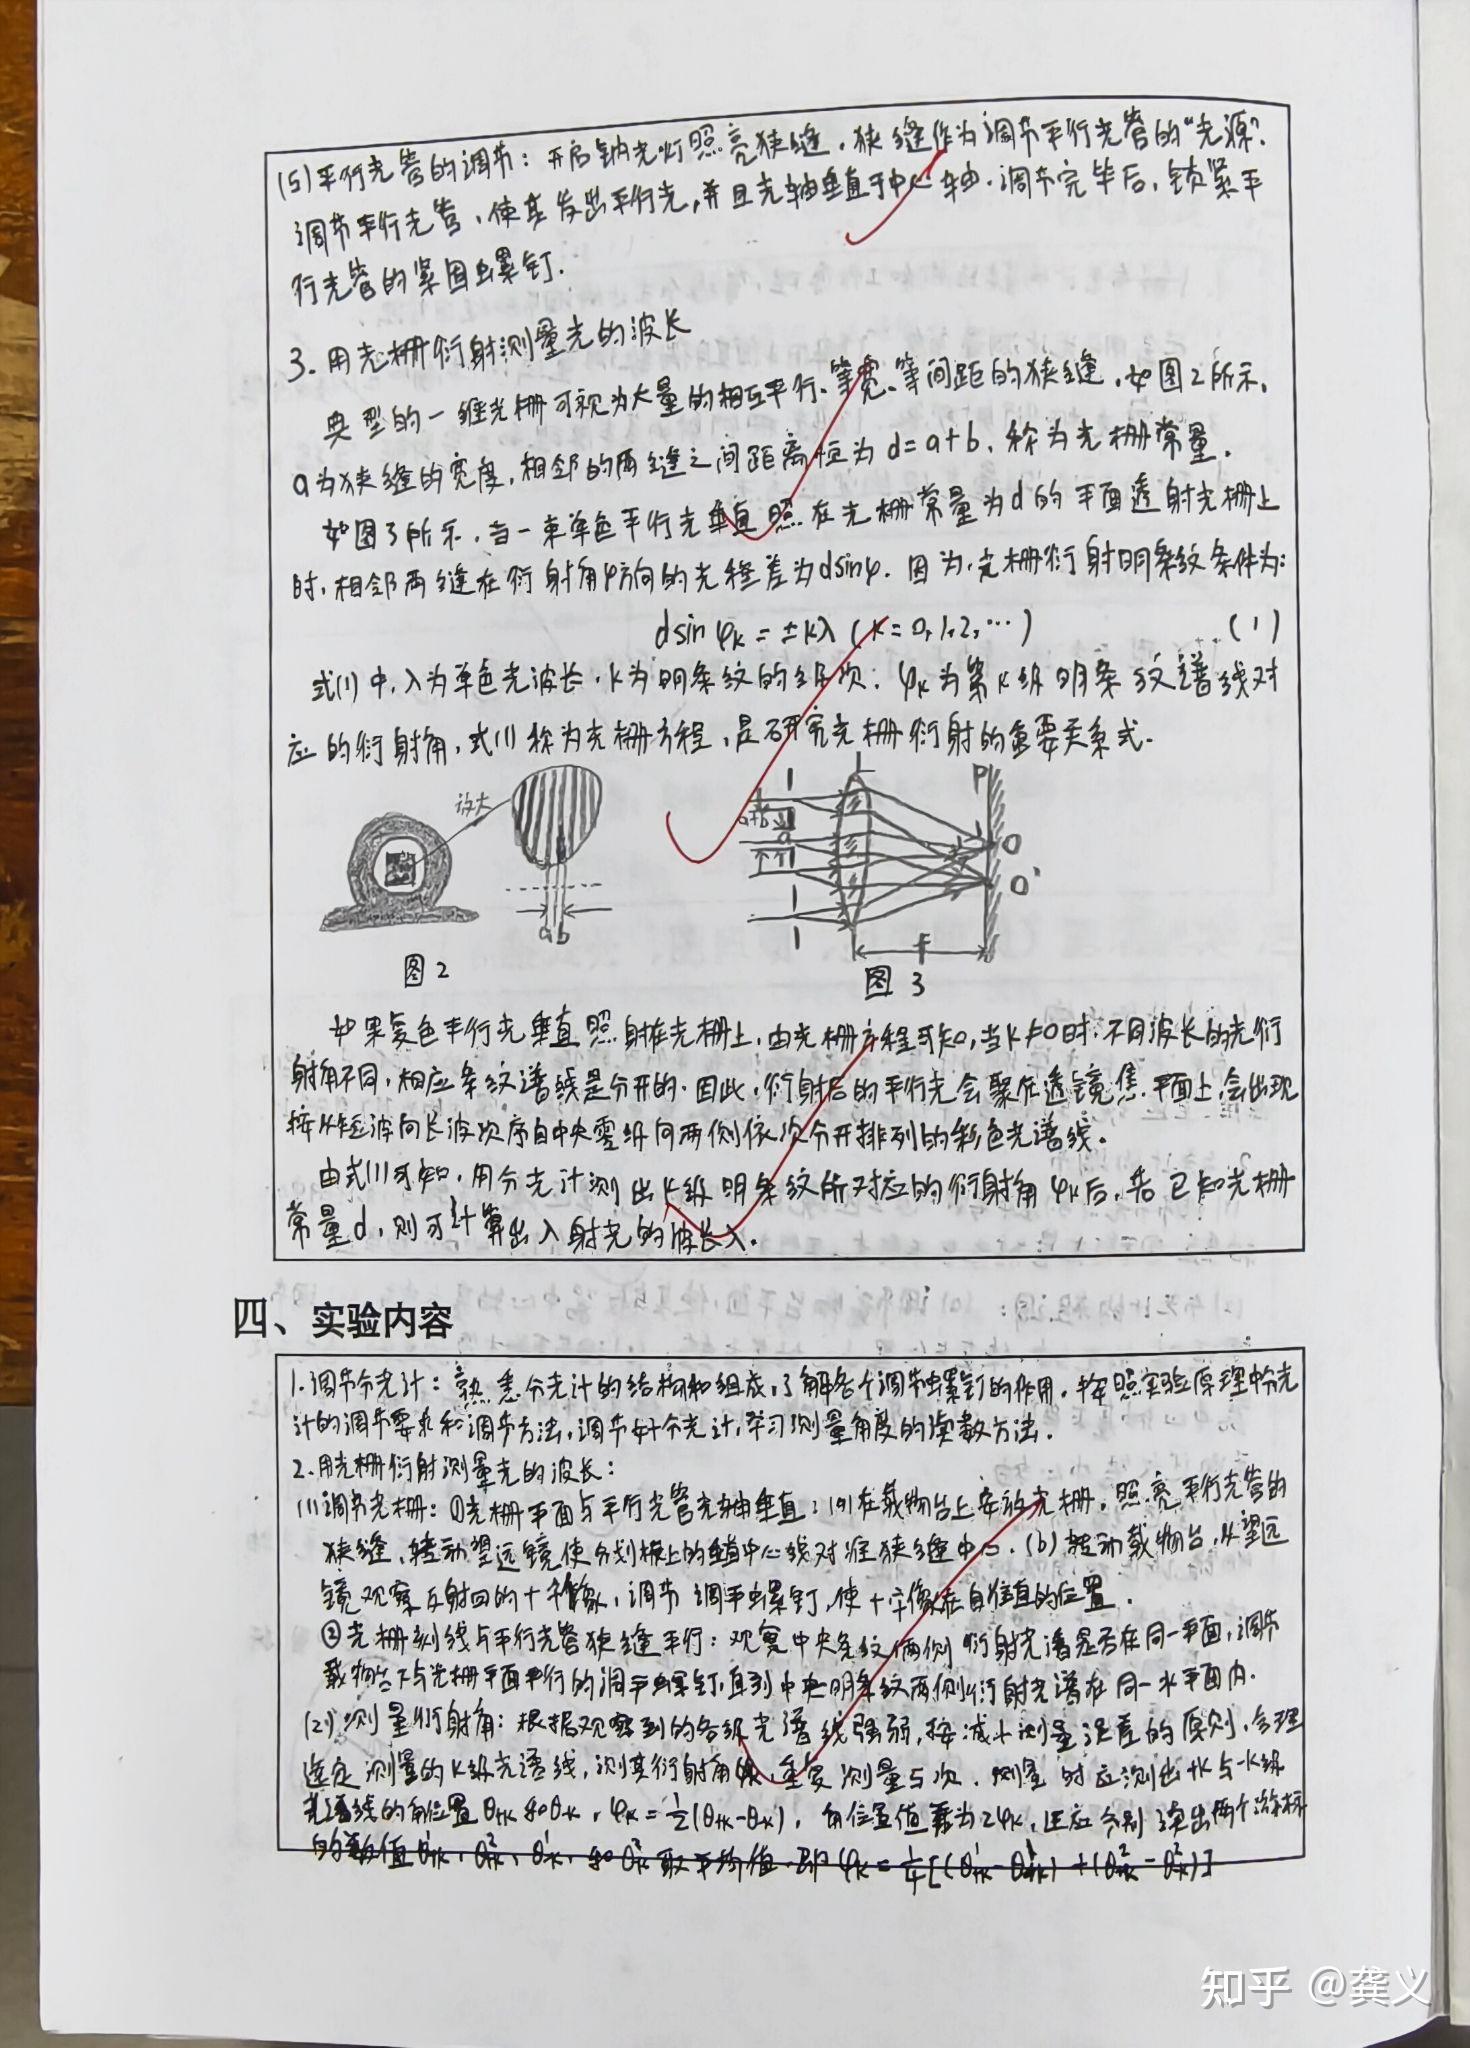 (5)平行光管的调节：开启钠光灯照亮狭缝，狭缝作为调节平行光管的“光源”.
调节平行光管，使其发出平行光，并且光轴垂直于中心轴.调节完毕后，锁紧平
行光管的紧固螺钉.
3.用光栅衍射测量光的波长
典型的一维光栅可视为大量的相互平行、等宽、等间距的狭缝，如图2所示.
a为狭缝的宽度，相邻的两缝之间距离恒为d=a+b，称为光栅常量.
如图3所示，当一束单色平行光垂直照在光栅常量为d的平面透射光栅上
时，相邻两缝在衍射角φ方向的光程差为dsinφ.因为，光栅衍射明条纹条件为：
dsinφk=±kλ(k=0,1,2,…) (1)
式(1)中，λ为单色光波长，k为明条纹的级次；φk为第k级明条纹谱线对
应的衍射角，式(1)称为光栅方程，是研究光栅衍射的重要关系式.
放大
a b
图2
a+b
a
L
P
O
O'
f
图3
如果复色平行光垂直照射在光栅上，由光栅方程可知，当k≠0时，不同波长的光衍
射角不同，相应条纹谱线是分开的.因此，衍射后的平行光会聚在透镜焦平面上，会出现
按从短波向长波次序自中央零级向两侧依次分开排列的彩色光谱线.
由式(1)可知，用分光计测出k级明条纹所对应的衍射角φk后，若已知光栅
常量d，则可计算出入射光的波长λ.
四、实验内容
1.调节分光计：熟悉分光计的结构和组成，了解各个调节螺钉的作用，按照实验原理中分光
计的调节要求和调节方法，调节好分光计，学习测量角度的读数方法.
2.用光栅衍射测量光的波长：
(1)调节光栅：①光栅平面与平行光管光轴垂直：(a)在载物台上安放光栅，照亮平行光管的
狭缝，转动望远镜使分划板上的垂直中心线对准狭缝中心.(b)转动载物台，从望远
镜观察反射回的十字像，调节调平螺钉，使十字像在自准直的位置.
②光栅刻线与平行光管狭缝平行：观察中央条纹两侧衍射光谱是否在同一平面，调节
载物台下与光栅平面平行的调平螺钉，直到中央明条纹两侧衍射光谱在同一水平面内.
(2)测量衍射角：根据观察到的各级光谱线强弱，按减小测量误差的原则，合理
选定测量的k级光谱线，测其衍射角φk，重复测量5次.测量时应测出+k与-k级
光谱线的角位置θ+k和θ-k，φk=½(θ+k-θ-k)，角位置值差为2φk，还应分别读出两个游标
的数值θ¹+k、θ²+k、θ¹-k、和θ²-k取平均值.即φk=¼[(θ¹+k-θ¹-k)+(θ²+k-θ²-k)]
知乎 @龚义